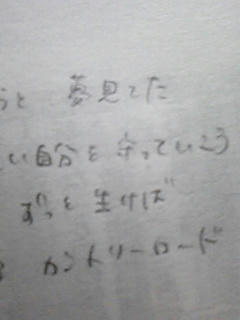 うと 夢見てた
い自分を 守っていこう
ずっと 生けば
カントリーロード